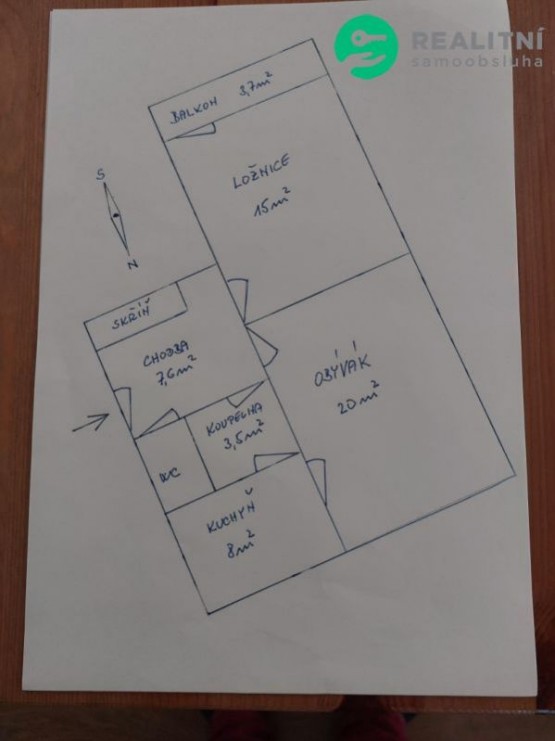 REALITNÍ
samoobsluha
BALKON 3,7m²
LOŽNICE
15m²
S
N
SKŘÍŇ
CHODBA
7,6m²
OBÝVÁK
20m²
KOUPELNA
3,5m²
WC
KUCHYŇ
8m²